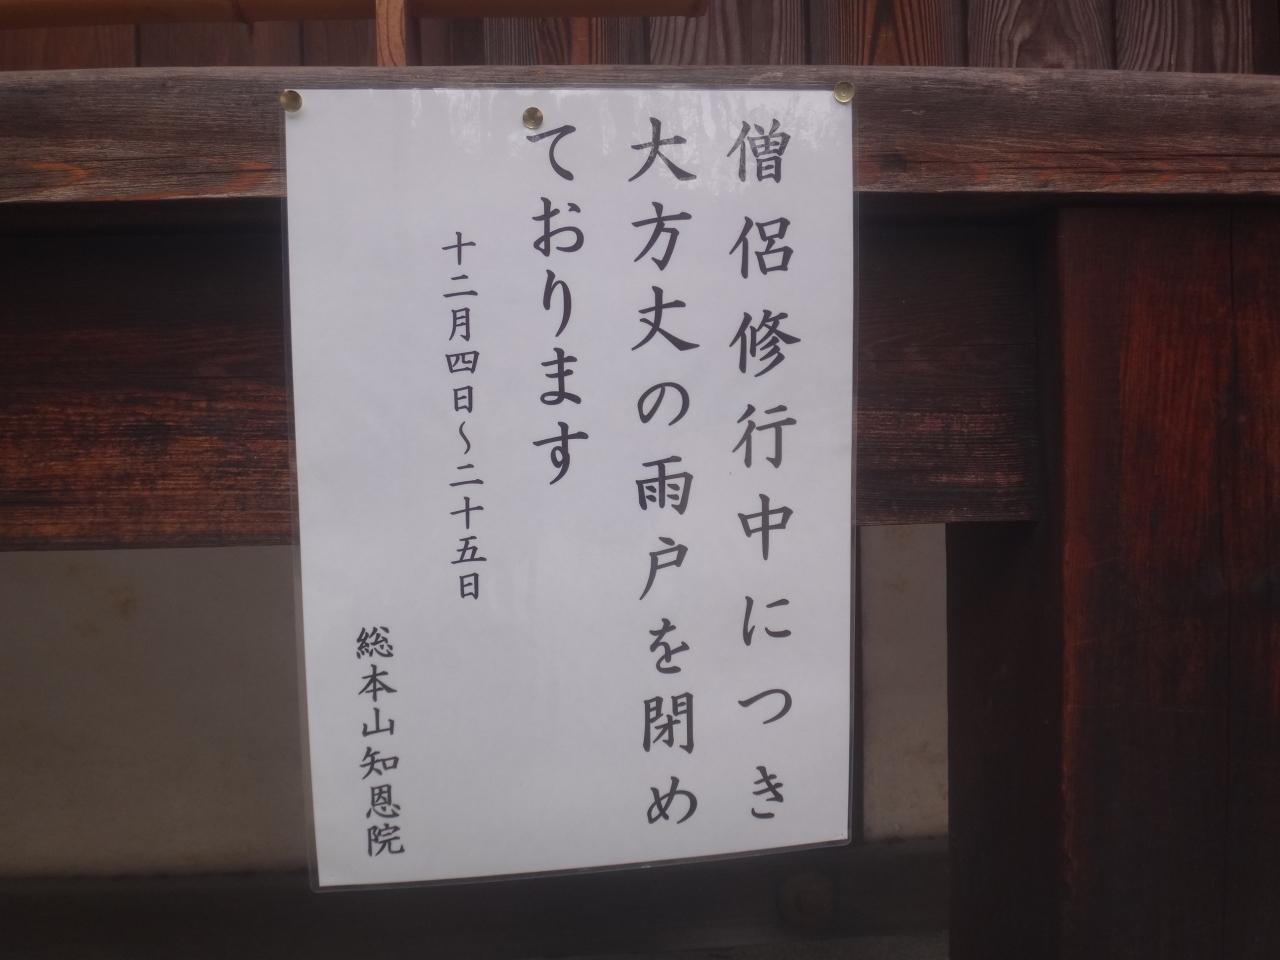 僧侶修行中につき
大方丈の雨戸を閉め
ております
十二月四日～二十五日
総本山知恩院